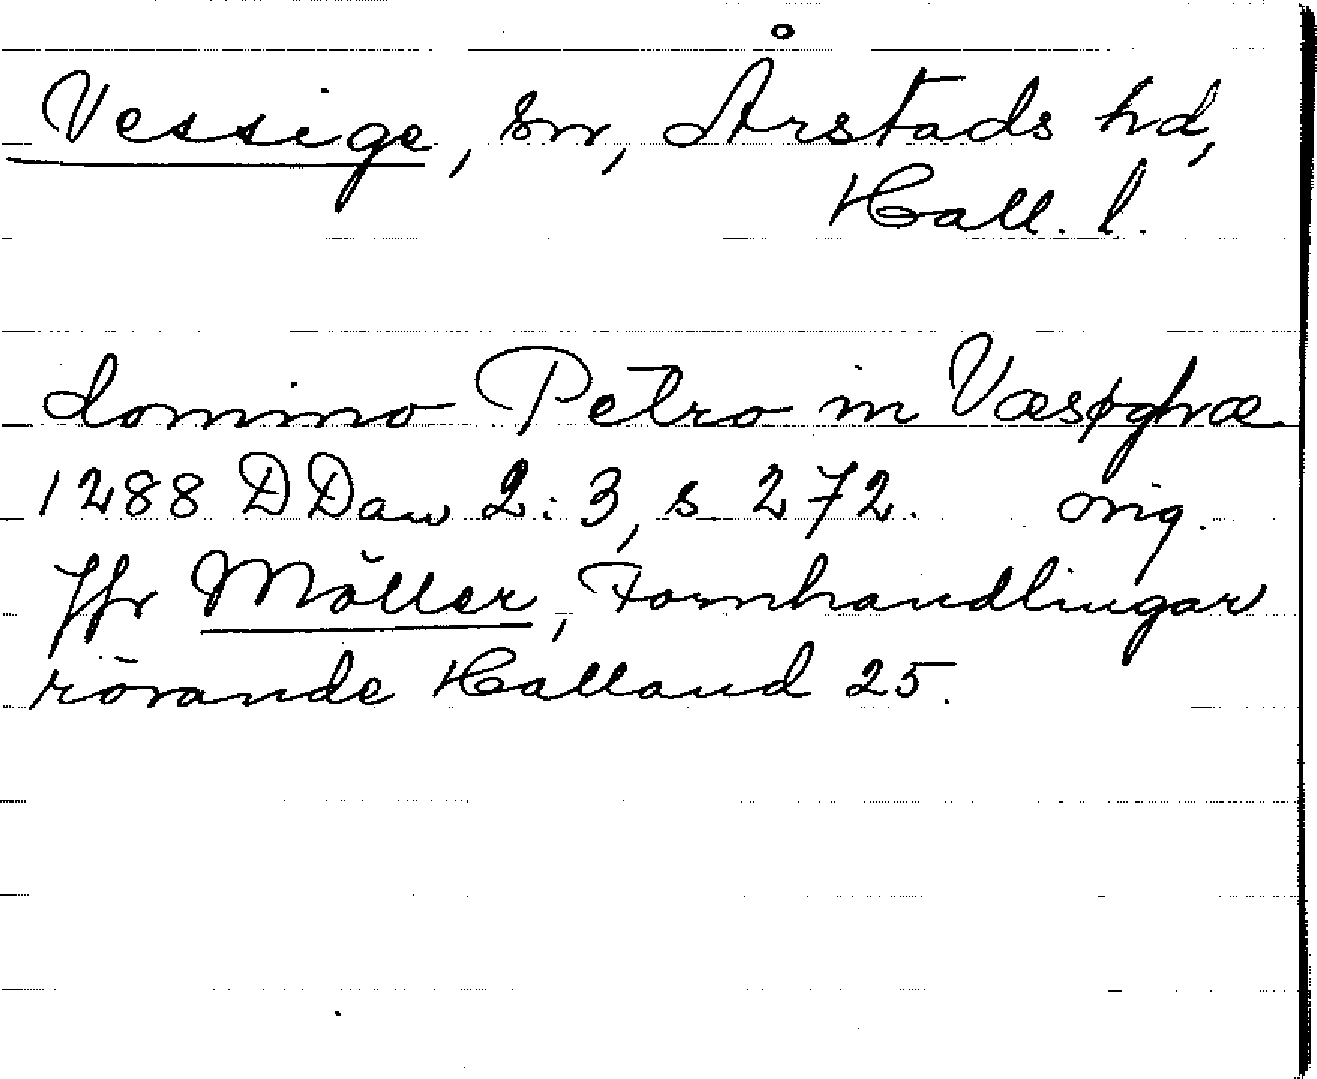 Vessige, sn, Årstads hd,
Hall. l.
domino Petro in
1288 DDan 2:3, s 272. orig.
Jfr Möller, Fornhandlingar
rörande Halland 25.